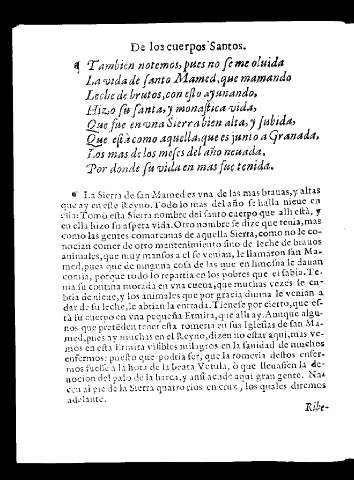 De los cuerpos Santos.
¶ Tambien notemos, pues no se me oluida
La vida de santo Mamed, que mamando
Leche de brutos, con esto ayunando,
Hizo su santa, y monastica vida,
Que fue en vna Sierra bien alta, y subida,
Que està como aquella, que es junto a Granada,
Los mas de los meses del año neuada,
Por donde su vida en mas fue tenida.
¶ La Sierra de san Mamed es vna de las mas brauas, y altas
que ay en este Reyno. Todo lo mas del año se halla nieue en
ella: Tomo esta Sierra nombre del santo cuerpo que alli està, y
en ella hizo su aspera vida. Otro nombre se dize que tenia, mas
como las gentes comarcanas de aquella Sierra, como no le co-
nocian comer de otro mantenimiento sino de leche de brauos
animales, que muy mansos a el se venian, le llamaron san Ma-
med, pues que de ninguna cosa de las que en limosna le dauan
comia, porque todo lo repartia en los pobres que el sabia. Te-
nia su contina morada en vna cueua, que muchas vezes se cu-
bria de nieue, y los animales que por gracia diuina le venian a
dar de su leche, le abrian la entrada. Tienese por cierto, que es-
tà su cuerpo en vna pequeña Ermita, que alli ay. Aunque algu-
nos que pretēden tener esta romeria en sus Iglesias de san Ma-
med, pues ay muchas en el Reyno, dizen no estar aqui, mas ve-
mos en esta Ermita visibles milagros en la sanidad de muchos
enfermos: puesto que podria ser, que la romeria destos enfer-
mos fuesse a la hora de la beata Vetula, ò que lleuassen la de-
uocion del palo de la barca, y ansi acade aqui gran gente. Na-
cen al pie de la Sierra quatro rios en cruz, los quales diremos
adelante.
Ribe-